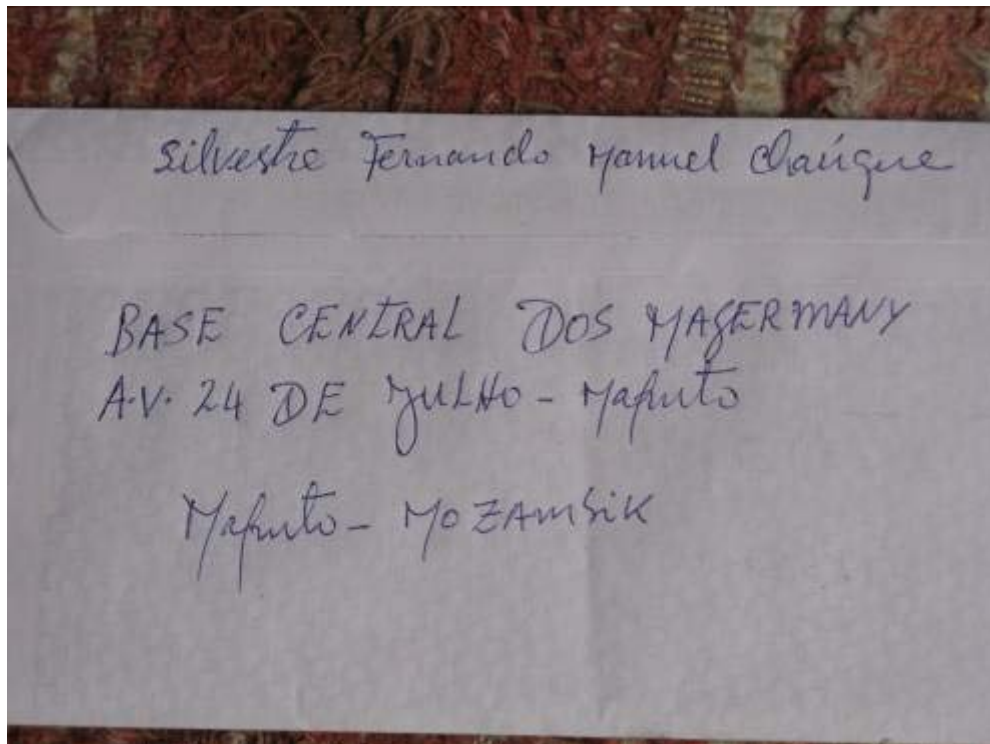 Silvestre Fernando Manuel Chaúque
BASE CENTRAL DOS MAGERMANY
A.V. 24 DE JULHO - Maputo
Maputo - MOZAMBIK